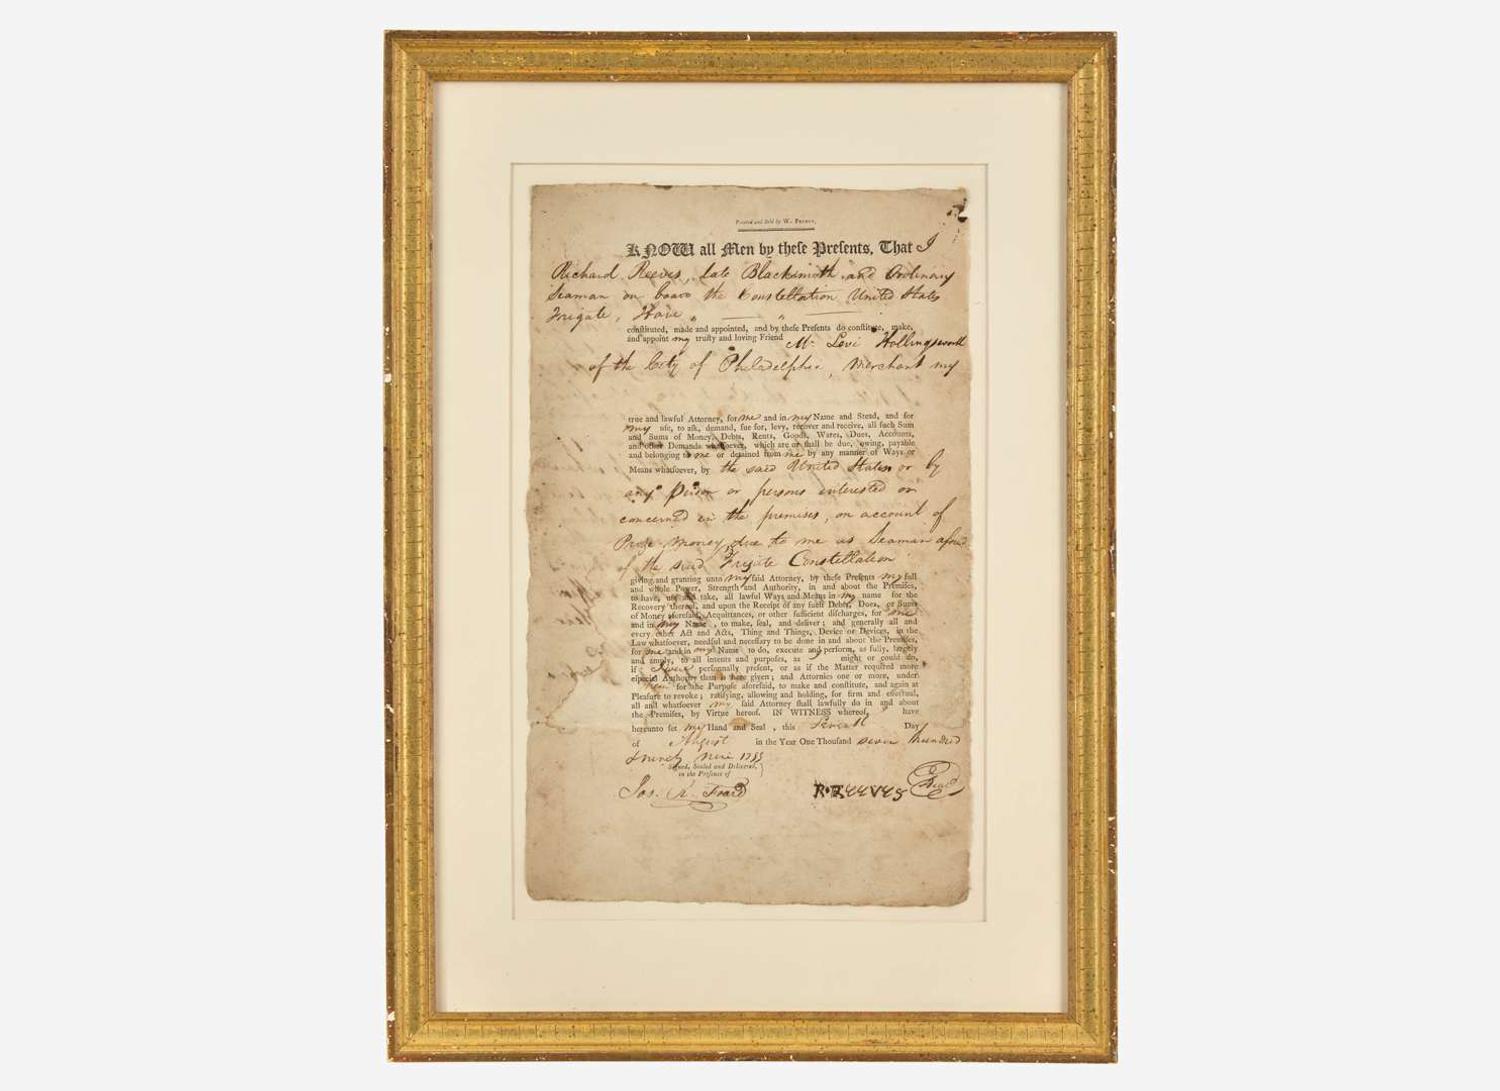 Printed and Sold by W. 
KNOW all Men by theſe Preſents, That I
Richard Reeves, late Blacksmith and Ordinary
Seaman on board the Constellation United States
Frigate, Have
conſtituted, made and appointed, and by theſe Preſents do conſtitute, make,
and appoint my truſty and loving Friend Mr. Levi Hollingsworth
of the City of Philadelphia, Merchant my
true and lawful Attorney, for me and in my Name and Stead, and for
my uſe, to aſk, demand, ſue for, levy, recover and receive, all ſuch Sum
and Sums of Money, Debts, Rents, Goods, Wares, Dues, Accounts,
and other Demands whatſoever, which are or ſhall be due, owing, payable
and belonging to me or detained from me by any manner of Ways or
Means whatſoever, by the said United States or by
any Person or persons interested or
concerned in the premises, on account of
Prize Money due to me as Seaman afores
of the said Frigate Constellation
giving and granting unto my ſaid Attorney, by theſe Preſents my full
and whole Power, Strength and Authority, in and about the Premiſes,
to have, uſe and take, all lawful Ways and Means in my name for the
Recovery thereof, and upon the Receipt of any ſuch Debts, Dues, or Sums
of Money aforeſaid, Acquittances, or other ſufficient diſcharges, for me
and in my Name, to make, ſeal, and deliver; and generally all and
every other Act and Acts, Thing and Things, Device or Devices, in the
Law whatſoever, needful and neceſſary to be done in and about the Premiſes,
for me and in my Name to do, execute and perform, as fully, largely
and amply, to all intents and purpoſes, as I might or could do,
if I were perſonally preſent, or as if the Matter required more
eſpecial Authority than is here given; and Attornies one or more, under
him for the Purpoſe aforeſaid, to make and conſtitute, and again at
Pleaſure to revoke; ratifying, allowing and holding, for firm and effectual,
all and whatſoever my ſaid Attorney ſhall lawfully do in and about
the Premiſes, by Virtue hereof. IN WITNESS whereof, I have
hereunto ſet my Hand and Seal, this Seventh Day
of August in the Year One Thouſand seven hundred
& ninety nine 1799
Signed, Sealed and Delivered,
in the Preſence of
Jos. R. R. REEVES Seal